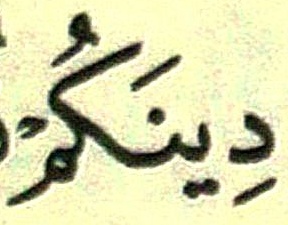 دِينَكُمْ